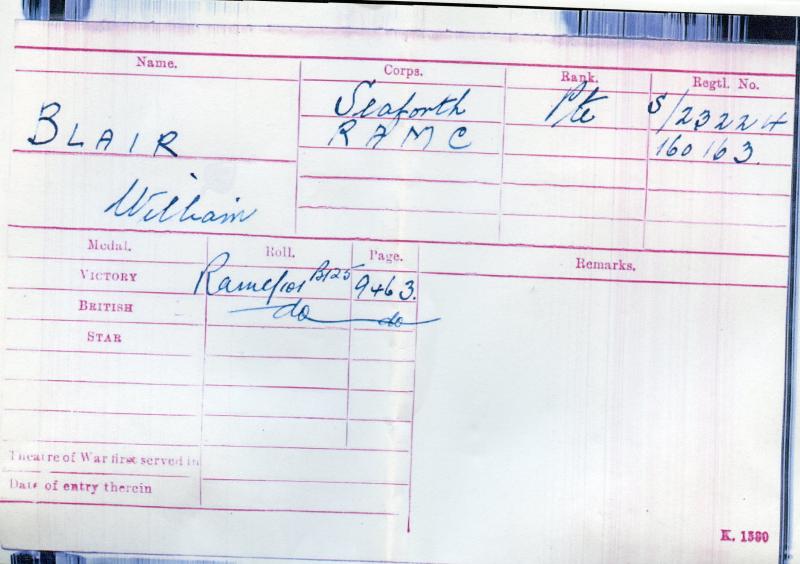 Name. Corps. Rank. Regtl. No.
BLAIR Seaforth Pte S/23224
RAMC 160163.
William
Medal. Roll. Page. Remarks.
VICTORY RAMC/101 B125 9463.
BRITISH do do
STAR
Theatre of War first served in
Date of entry therein
K. 1380